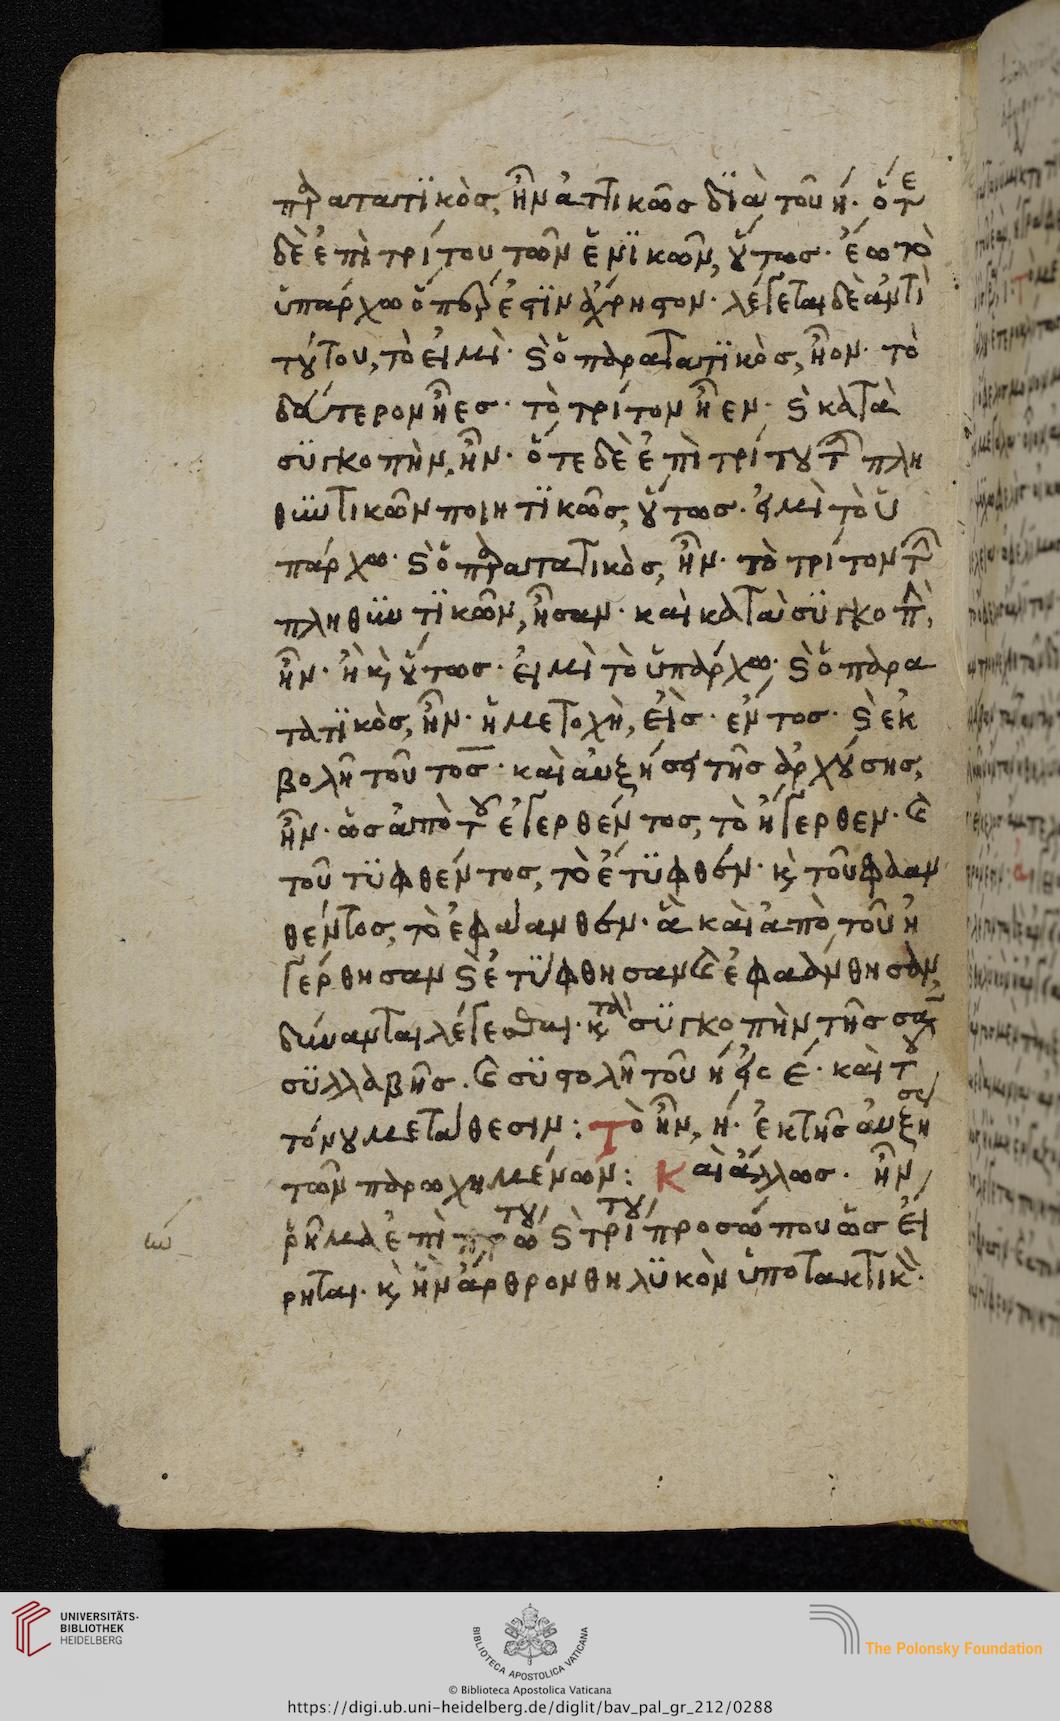 παρατατϊκὸς, ἦν ἀττικῶς δϊὰ τοῦ η. ὅτε
δὲ ἐπὶ τρίτου τῶν ἑνϊκῶν, οὕτως. ἔω τὸ
ὑπάρχω ὅπερ ἐστὶν ἄχρηστον. λέγεται δὲ ἀντὶ
τούτου, τὸ εἰμὶ. καὶ ὁ παρατατϊκὸς, ἦον. τὸ
δεύτερον ἦες. τὸ τρίτον ἦεν. καὶ κατὰ
σϋγκοπὴν, ἦν. ὅτε δὲ ἐπὶ τρίτου τῶν πλη
θϋντικῶν ποιητϊκῶς, οὕτως. εἰμὶ τὸ ὑ
πάρχω. καὶ ὁ παρατατικὸς, ἦν. τὸ τρίτον τῶν
πληθϋντϊκῶν, ἦσαν. καὶ κατὰ σϋγκοπὴν,
ἦν. ἢ καὶ οὕτως. εἰμὶ τὸ ὑπάρχω. καὶ ὁ παρα
τατϊκὸς, ἦν. ἡ μετοχὴ, εἰς. ἐντος. καὶ ἐκ
βολῇ τοῦ τος. καὶ αὐξήσει τῆς ἀρχούσης,
ἦν. ὡς ἀπὸ τοῦ ἐγερθέντος, τὸ ἤγερθεν. καὶ
τοῦ τϋφθέντος, τὸ ἔτϋφθεν. καὶ τοῦ φααν
θέντος, τὸ ἐφάανθεν. ἃ καὶ ἀπὸ τοῦ ἠ
γέρθησαν καὶ ἐτϋφθησαν καὶ ἐφαάνθησαν,
δύνανται λέγεσθαι. κατὰ σϋγκοπὴν τῆς σαν
σϋλλαβῆς. καὶ σϋστολῇ τοῦ η εἰς ε. καὶ τοῦ
τόνου μετάθεσιν: Τὸ ἦν, η. ἐκ τῆς αὐξήσεως
τῶν παρωχημένων: Καὶ ἄλλως. ἦν,
ῥῆμα ἐπὶ πρώτου καὶ τρίτου προσώπου ὡς εἴ
ρηται. καὶ ἣν ἄρθρον θηλϋκὸν ὑποτακτικὸν.
UNIVERSITÄTS-
BIBLIOTHEK
HEIDELBERG
BIBLIOTECA APOSTOLICA VATICANA
The Polonsky Foundation
© Biblioteca Apostolica Vaticana
https://digi.ub.uni-heidelberg.de/diglit/bav_pal_gr_212/0288